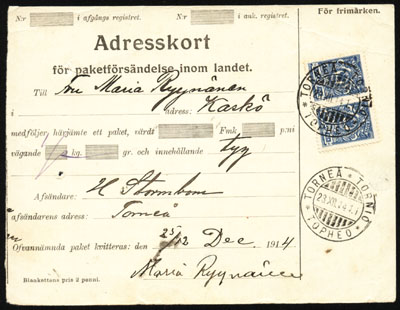 N:r i afgångs registret. N:r i ank. registret. För frimärken.
Adresskort
för paketförsändelse inom landet.
Till Fru Maria Ryynänen
adress: Kaskö
medföljer härjämte ett paket, värdt Fmk p:ni
vägande kg. gr. och innehållande tyg
Afsändare: H Stormbom
afsändarens adress: Torneå
Ofvannämnda paket kvitteras: den 25/12 Dec. 1914
Maria Ryynänen
Blankettens pris 2 penni.
TORNEÅ TORNIO
23.XII.14
ТОРНЕО